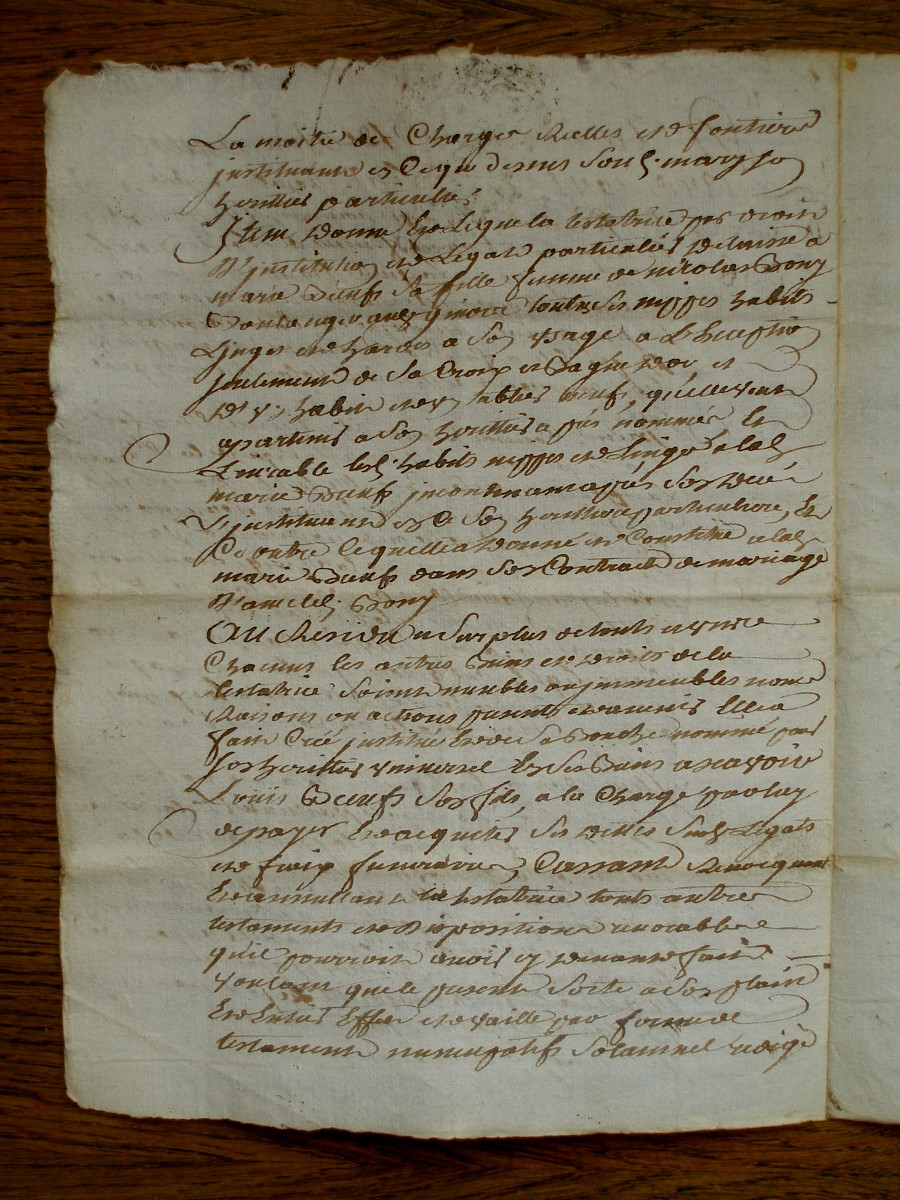 La moitié des Charges Réelles et fontieres
justituant en ce que dessus son d. mary son
heritier particulier
Item donne et Legue la testatrice par droit
D'institution et Legat particulier delaissé a
marie Beuf sa fille femme de nicolas Bony
Boulanger toutes ses nippes habits
Linges et hardes a son usage a L'Exception
seulement de sa Croix et Bague d'or et
d'un habit et un tablier neuf, qu'elle veut
apartenir a son heritier apres nommé, et
les d. habits nippes et Linge a la d.
marie Beuf incontinant apres son décés
L'instituant en ce son heritiere particuliere, Et
Ce outre ce quelle a donné et Constitué a la d.
marie Beuf dans son Contract de mariage
D'avec le d. Bony
Au Residu et surplus de touts et uns
Chacuns les autres Biens et droits de la
testatrice soient meubles ou immeubles noms
Raisons ou actions presents et avenir Elle a
fait Créé institué et de sa Bouche nommé pour
son heritier universel En ses Biens a scavoir
Louis Beuf son fils, a la Charge par luy
de payer et acquiter ses dettes susd. Legats
et fraix funeraires, Cassant Revocquant
Et annullant la testatrice touts autres
testaments et Dispositions
qu'elle pourroit avoir cy devant fait
voulant que le present sorte a son plain
Et Entier Effet et vaille par forme de
testament nuncupatif solamnel redigé